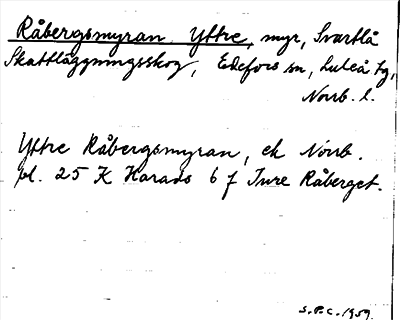 Råbergsmyran Yttre, myr, Svartlå
Skattläggningsskog, Edefors sn, Luleå tg,
Norrb. l.
Yttre Råbergsmyran, ek Norrb.
pl. 25 K Harads 6 f Inre Råberget.
S.P.C. 1959.